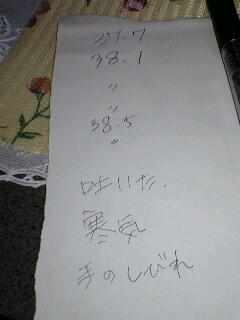 37.7
38.1
〃
〃
38.5
〃
吐いた.
寒気
手のしびれ